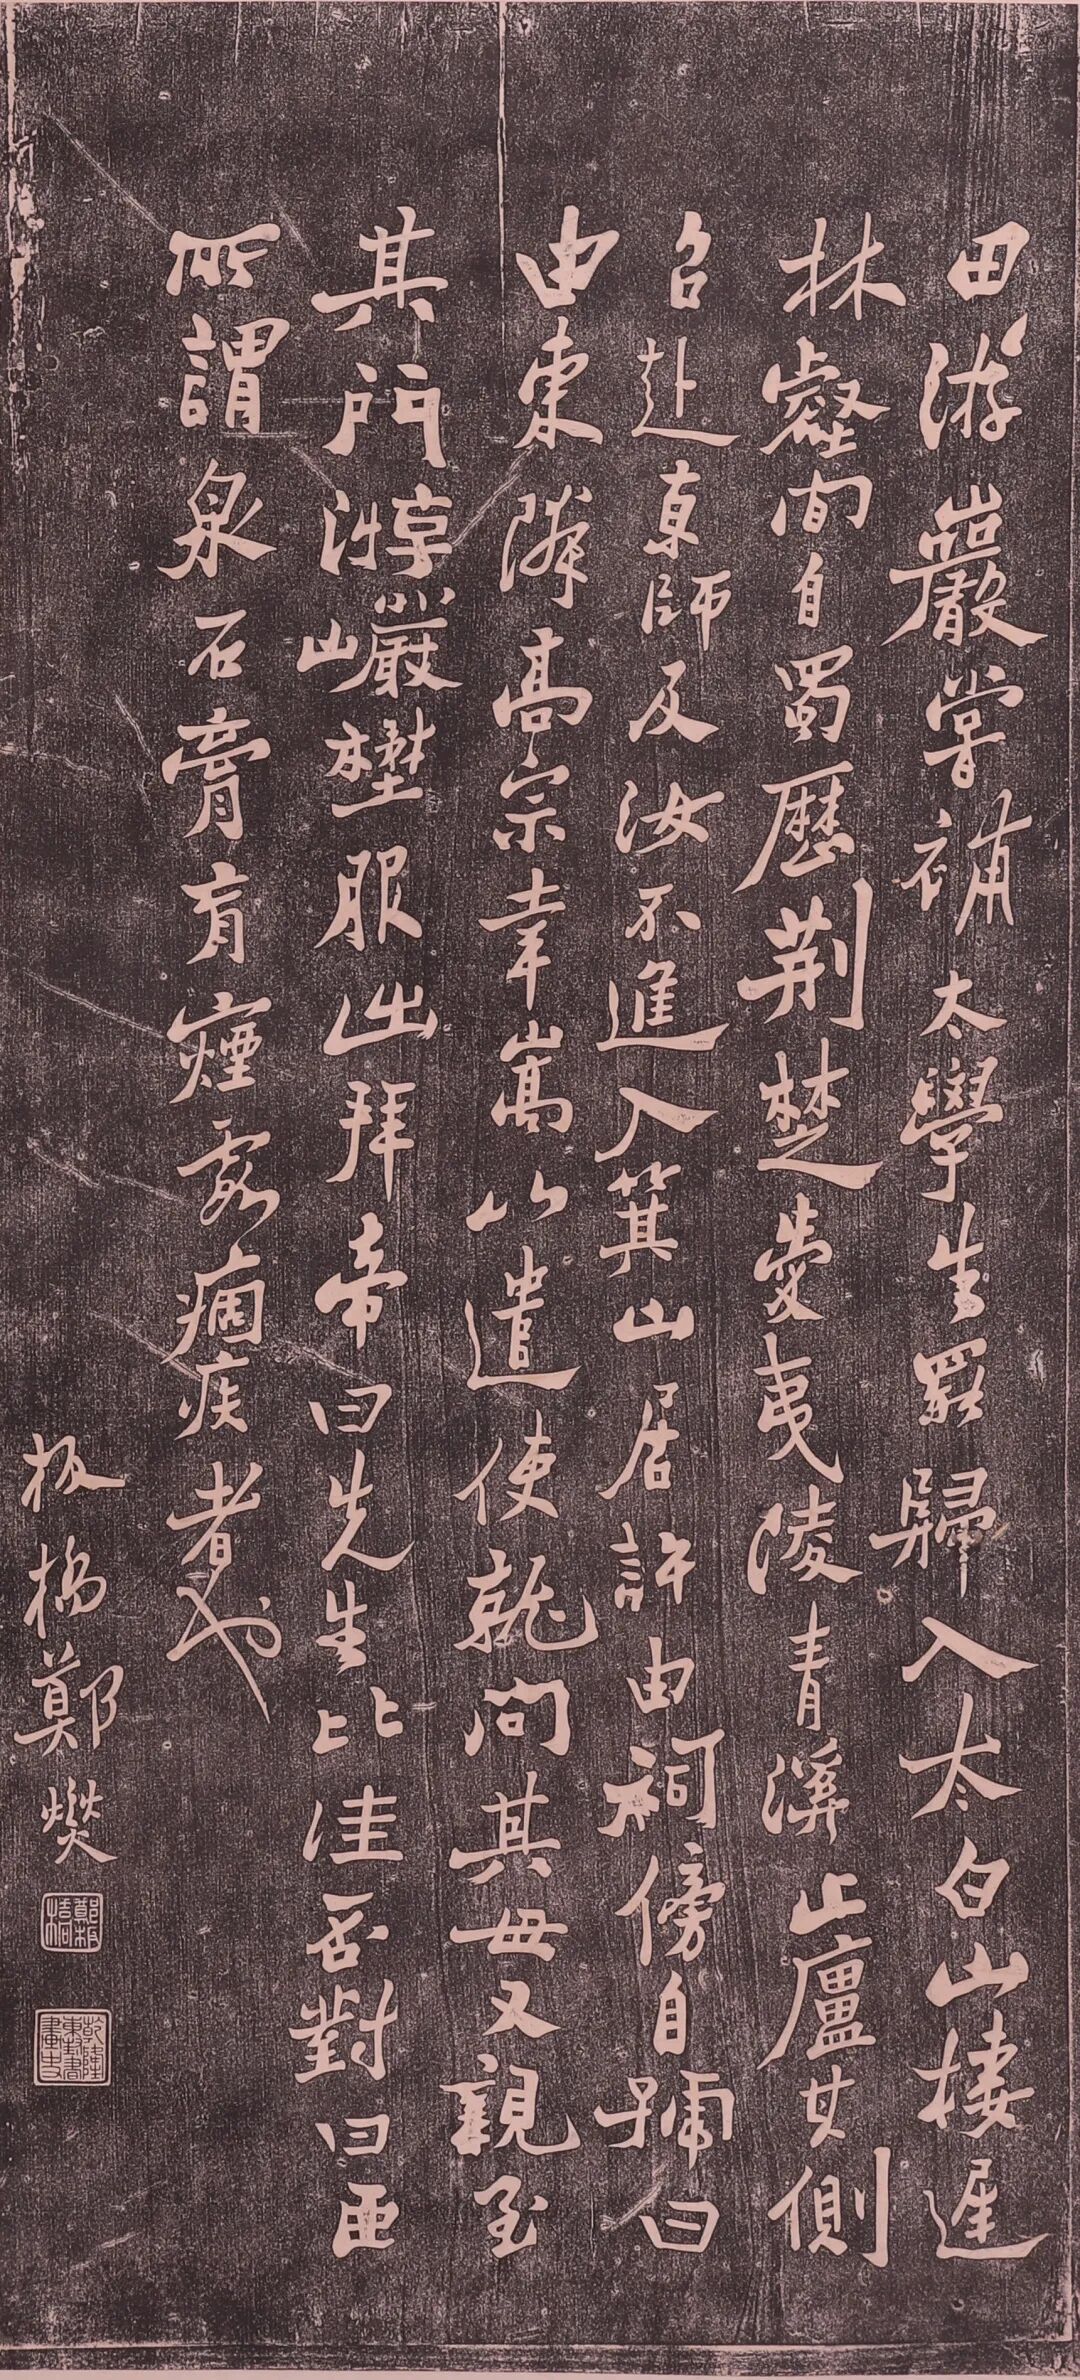 田游巖嘗補太學生罷歸入太白山棲遲
林壑間自蜀歷荆楚愛夷陵青溪止廬其側
召赴京師及汝不進入箕山居許由祠傍自號曰
由東隣高宗幸嵩山遣使就問其母又親至
其門游巖野服出拜帝曰先生比佳否對曰臣
所謂泉石膏肓煙霞痼疾者也
板橋鄭燮
鄭板橋
乾隆東封書畫史